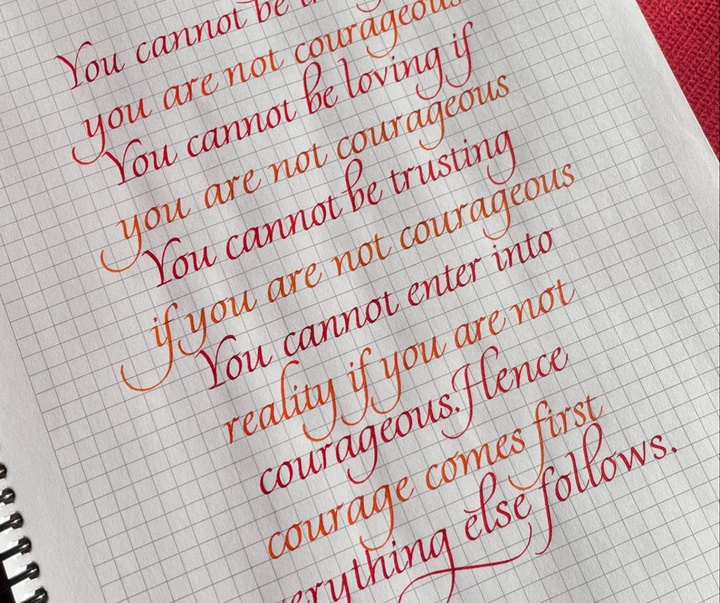 You cannot be
you are not courageous
You cannot be loving if
you are not courageous
You cannot be trusting
if you are not courageous
You cannot enter into
reality if you are not
courageous. Hence
courage comes first
else follows.